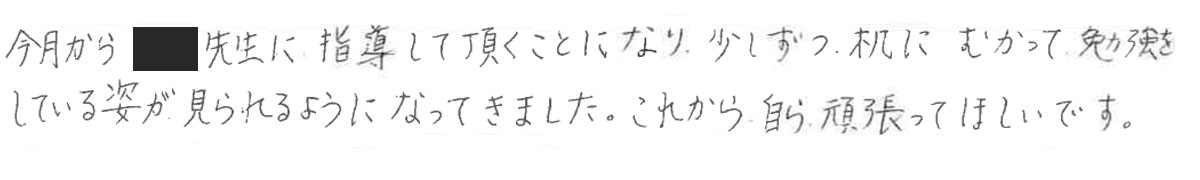 今月から 先生に 指導して頂くことになり 少しずつ 机に むかって 勉強を
している姿が見られるようになってきました。これから 自ら 頑張ってほしいです。